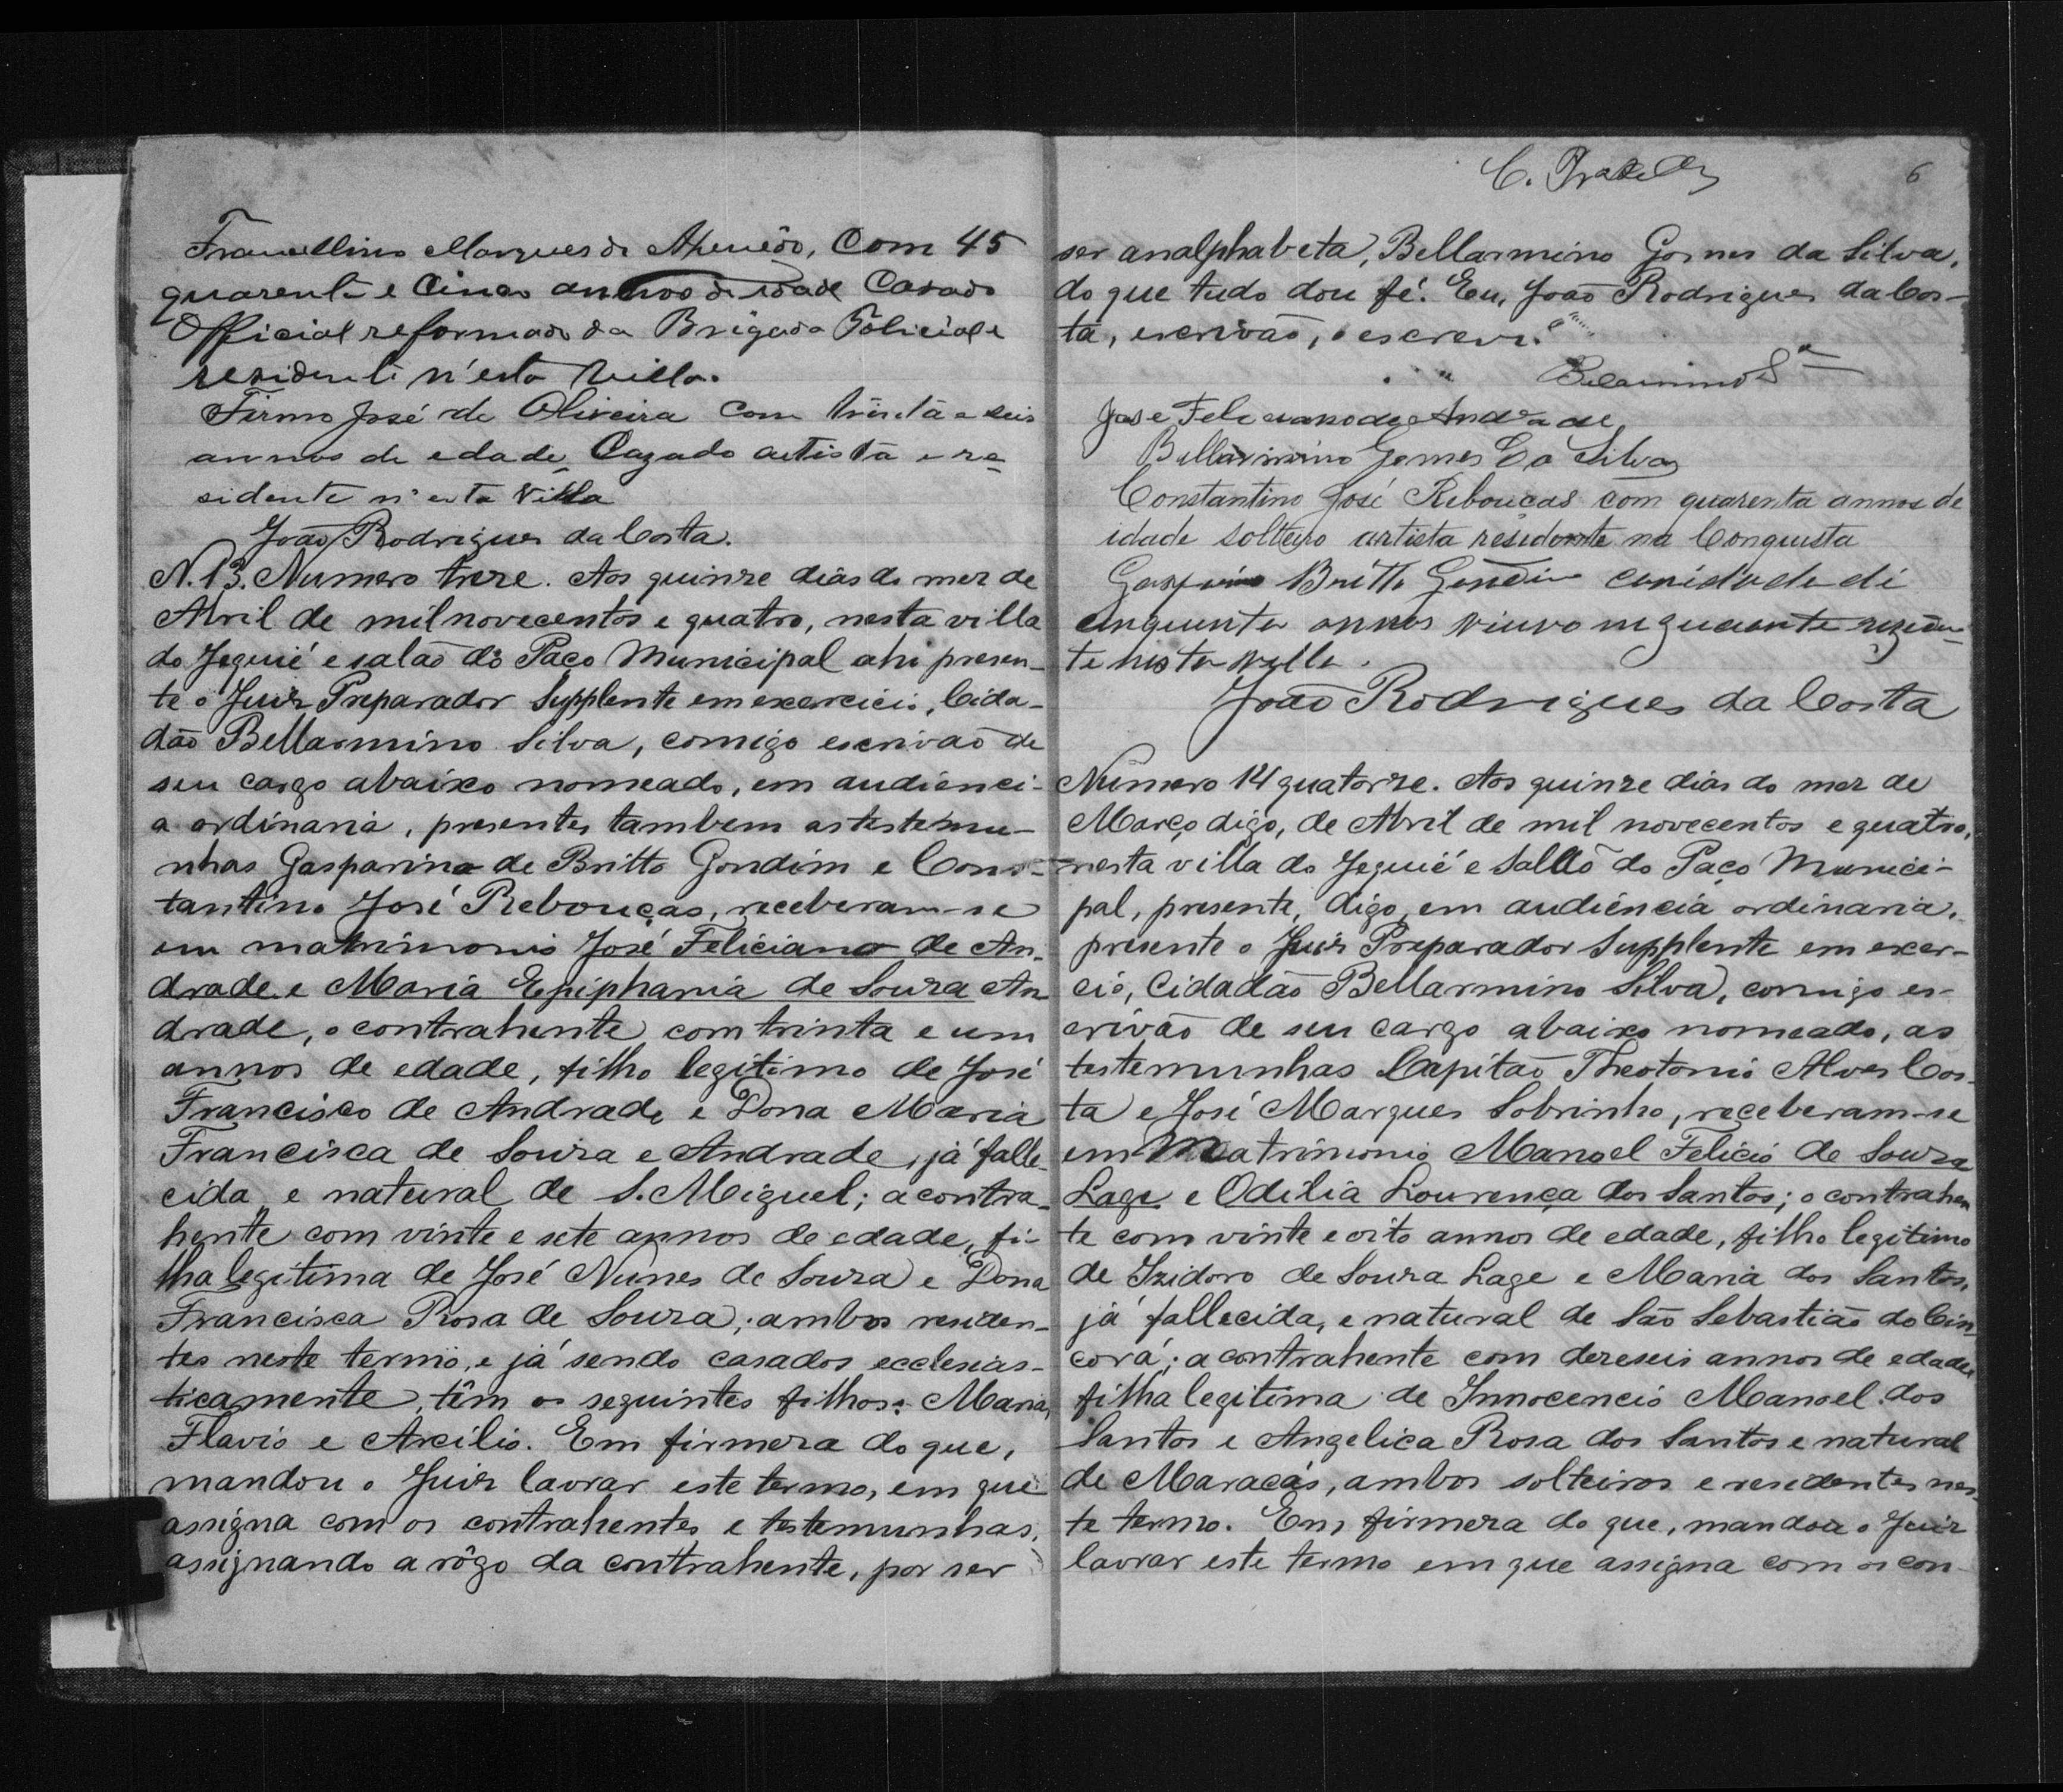 Marques de Azevêdo, Com 45
quarenta e Cinco annos de idade Casado
Official reformado da Brigada Policial e
residente n'esta Villa.
Firmo José de Oliveira com trinta e seis
annos de edade, Cazado artista e re-
sidente n'esta Villa
João Rodrigues da Costa.
N. 13. Numero treze. Aos quinze dias do mez de
Abril de mil novecentos e quatro, nesta villa
do Jequié e salão do Paço Municipal ahi presen-
te o Juiz Preparador Supplente em exercicio, Cida-
dão Bellarmino Silva, comigo escrivão de
seu cargo abaixo nomeado, em audienci-
a ordinaria, presentes tambem as testemu-
nhas Gasparino de Britto Gondim e Cons-
tantino José Rebouças, receberam-se
em matrimonio José Feliciano de An-
drade e Maria Epiphania de Souza An
drade, o contrahente com trinta e um
annos de edade, filho legitimo de José
Francisco de Andrade e Dona Maria
Francisca de Souza e Andrade, já falle-
cida, e natural de S. Miguel; a contra-
hente com vinte e sete annos de edade, fi-
lha legitima de José Nunes de Souza e Dona
Francisca Rosa de Souza; ambos residen-
tes neste termo, e já sendo casados ecclesias-
ticamente, têm os seguintes filhos: Maria,
Flavio e Arcilio. Em firmeza do que,
mandou o Juiz lavrar este termo, em que
assigna com os contrahentes e testemunhas,
assignando a rôgo da contrahente, por ser
6
ser analphabeta, Bellarmino Gomes da Silva,
do que tudo dou fé. Eu, João Rodrigues da Cos-
ta, escrivão, o escrevi.
Belarmino Sa
Jose Felicianode Andrade
Bellarmino Gomes Da Silva
Constantino José Rebouças com quarenta annos de
idade solteiro artista residente na Conquista
Gasparino Britto Gondim com idade di
cinquenta annos viuvo negociante reziden-
te nesta villa.
João Rodrigues da Costa
Numero 14 quatorze. Aos quinze dias do mez de
Março digo, de Abril de mil novecentos e quatro,
nesta villa do Jequié e Sallão do Paço Munici-
pal, presente, digo, em audiencia ordinaria,
presente o Juiz Preparador Supplente em exer-
cio, Cidadão Bellarmino Silva, comigo es-
crivão de seu cargo abaixo nomeado, as
testemunhas Capitão Theotonio Alves Cos-
ta e José Marques Sobrinho, receberam-se
em Matrimonio Manoel Felicio de Souza
Lage e Odilia Lourença dos Santos; o contrahen
te com vinte e oito annos de edade, filho legitimo
de Izidoro de Souza Lage e Maria dos Santos,
já fallecida, e natural de São Sebastião do Cin-
corá; a contrahente com dezeseis annos de edade
filha legitima de Innocencio Manoel dos
Santos e Angelica Rosa dos Santos e natural
de Maracás, ambos solteiros e residentes nes-
te termo. Em firmeza do que, mandou o Juiz
lavrar este termo em que assigna com os con-